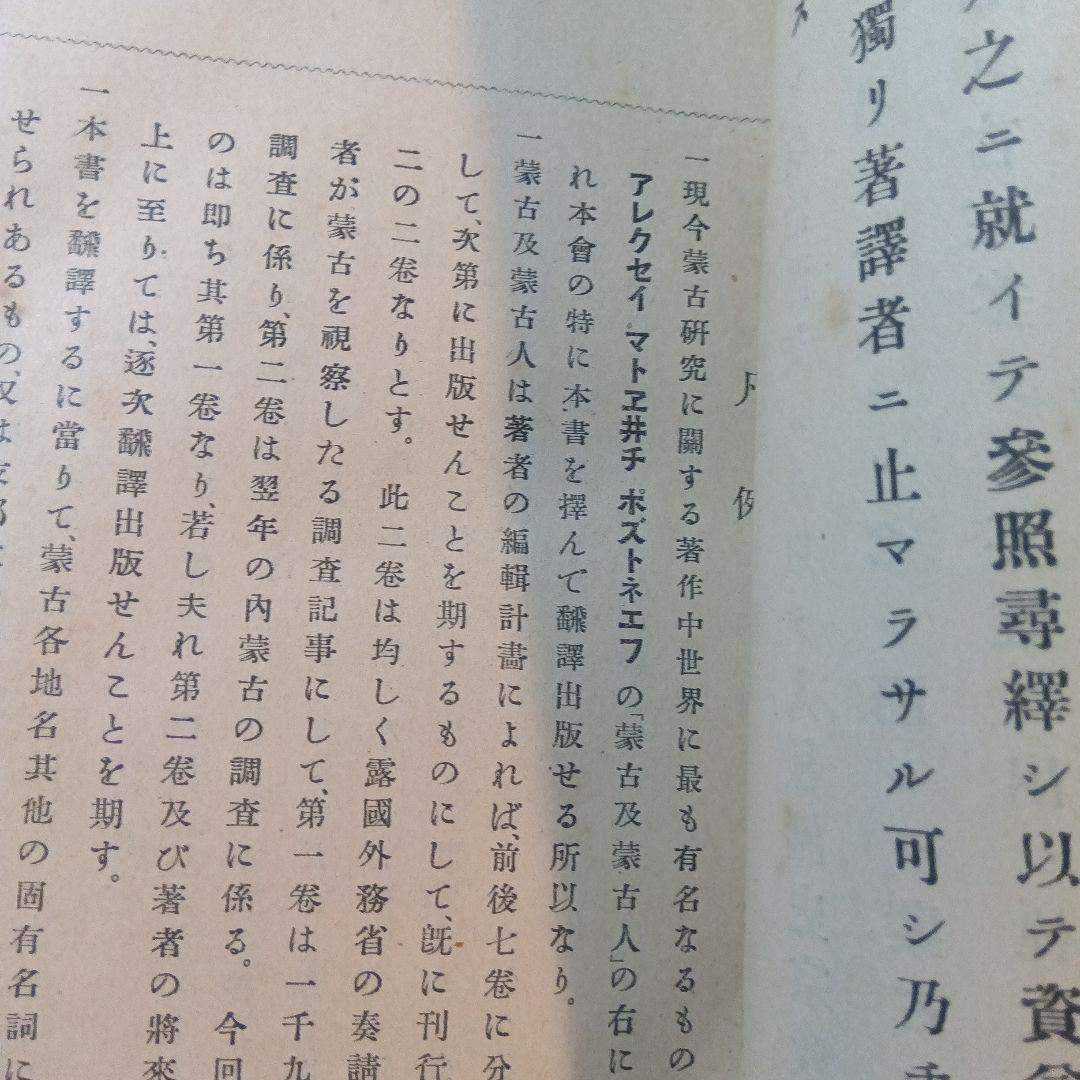 之ニ就イテ參照尋繹シ以テ資
獨リ著譯者ニ止マラサル可シ乃
凡例
一現今蒙古硏究に關する著作中世界に最も有名なるもの
アレクセイ マトヱ井チ ポズトネエフの「蒙古及蒙古人」の右に
れ本會の特に本書を擇んで飜譯出版せる所以なり。
一蒙古及蒙古人は著者の編輯計畵によれば、前後七卷に分
して、次第に出版せんことを期するものにして、旣に刊行
二の二卷なりとす。 此二卷は均しく露國外務省の奏請
者が蒙古を視察したる調査記事にして、第一卷は一千九
調査に係り、第二卷は翌年の內蒙古の調査に係る。 今回
のは卽ち其第一卷なり、若し夫れ第二卷及び著者の將來
上に至りては、逐次飜譯出版せんことを期す。
一本書を飜譯するに當りて、蒙古各地名其他の固有名詞に
せられあるもの、又は